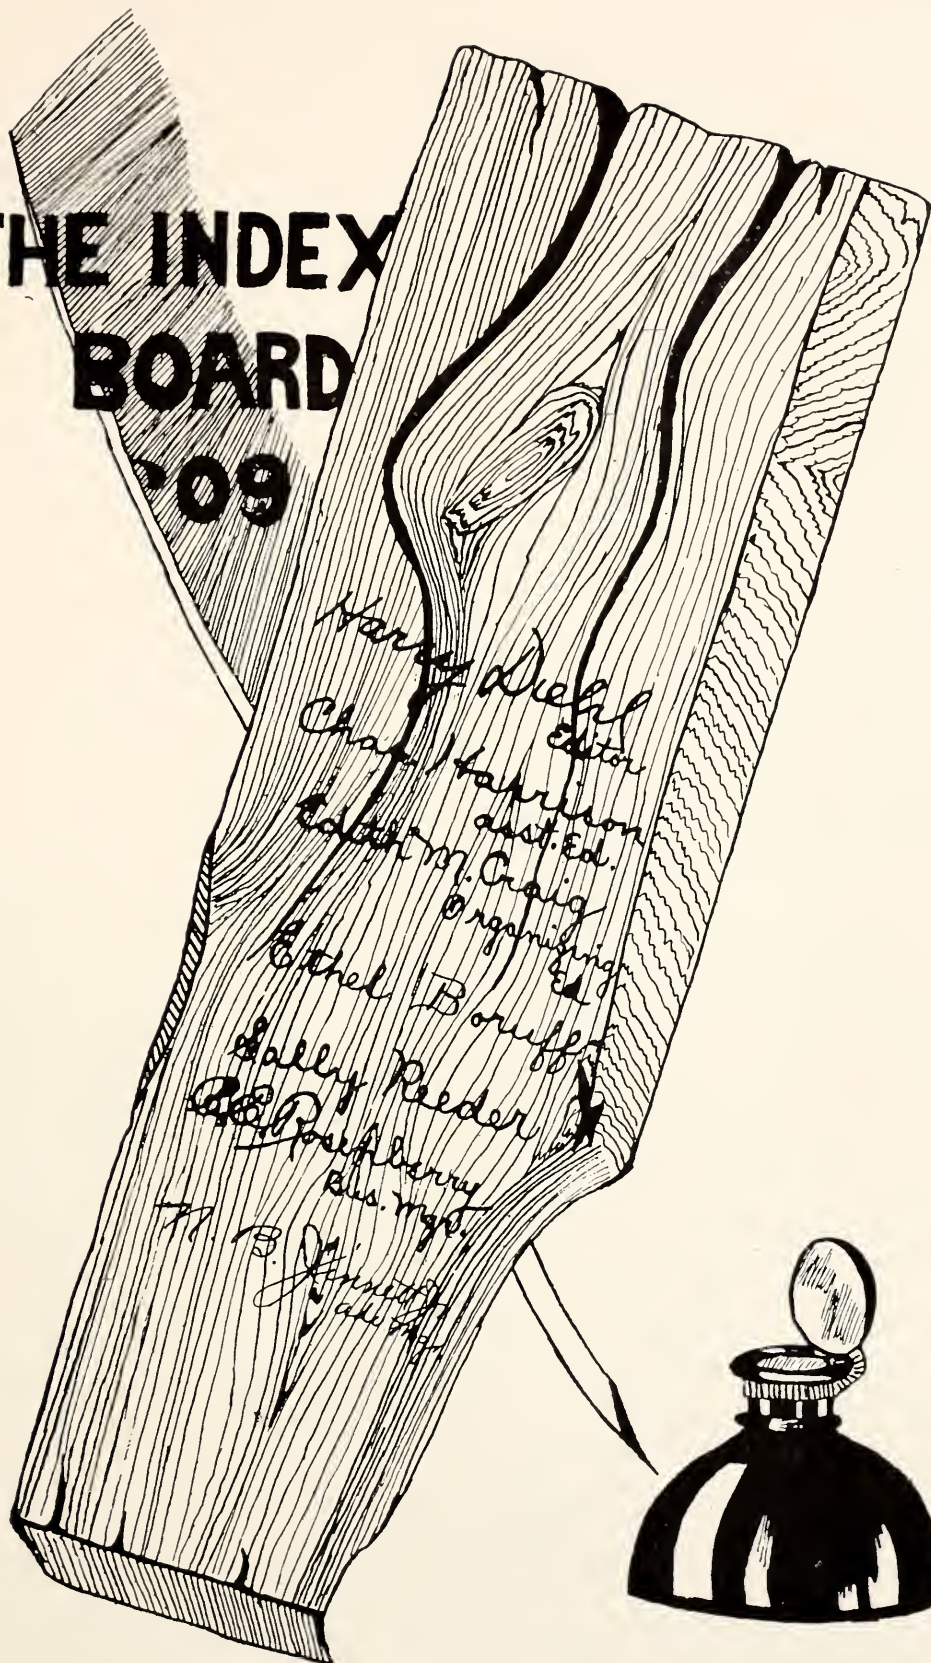 THE INDEX
BOARD
'09
Harry Diehl
Editor
Chas. Harrison
asst. Ed.
Edith M. Craig
Organizing
Ed
Ethel Boruff
Sally Reeder
Rosenberry
Bus. Mgr.
N. B.
Mgr.